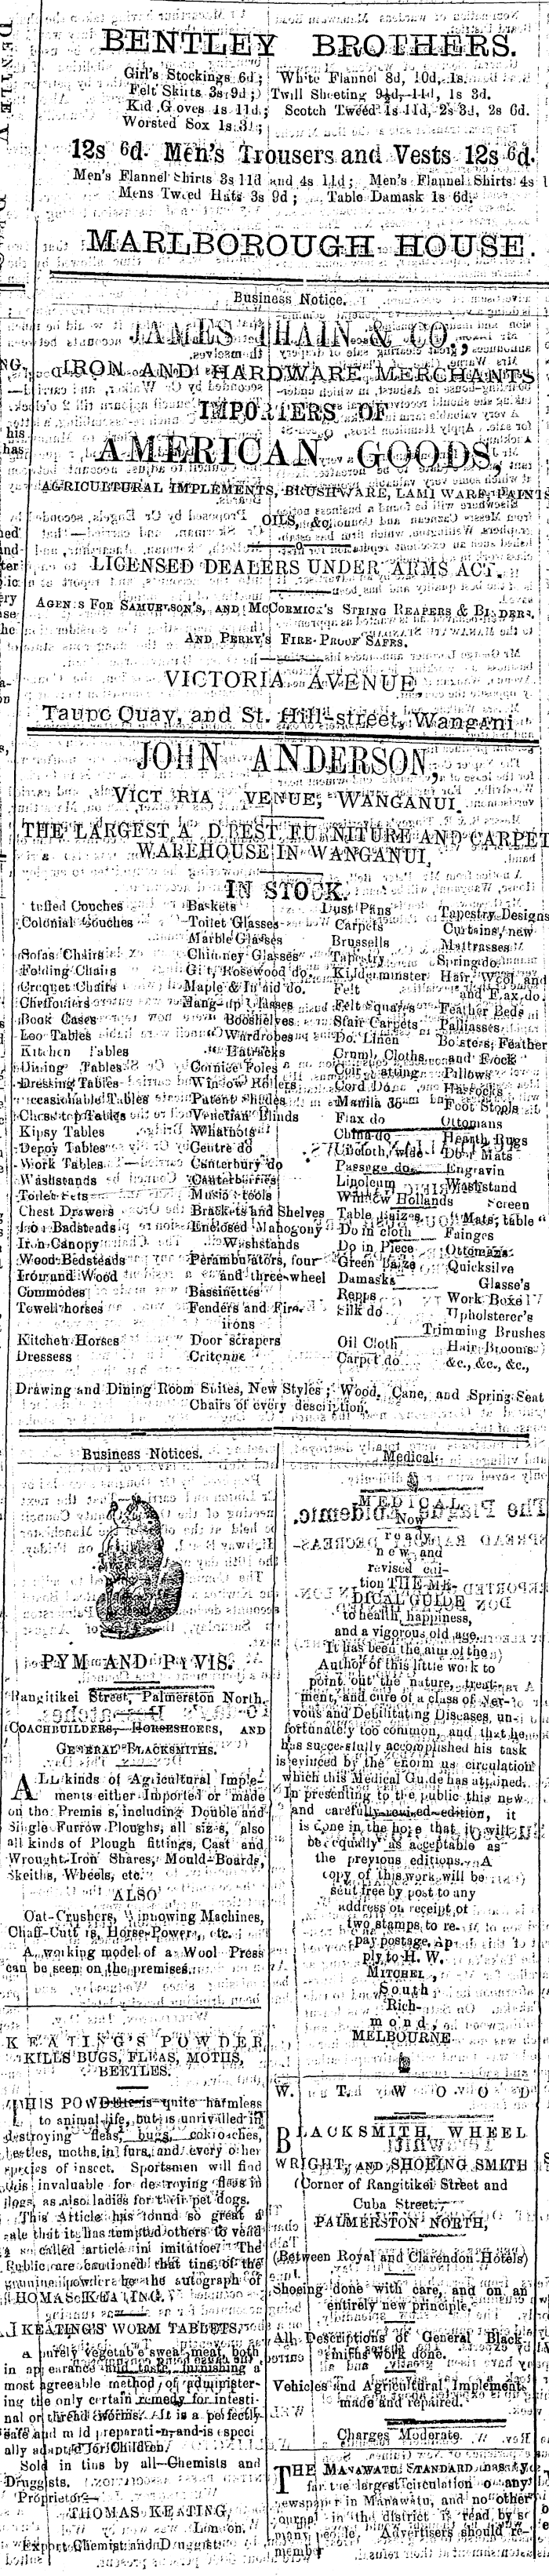 BENTLEY BROTHERS.
Girl's Stockings 6d; White Flannel 8d, 10d, 1s.
Felt Skirts 3s 9d; Twill Sheeting 9½d, 11d, 1s 3d.
Kid Gloves 1s 11d; Scotch Tweed 1s 11d, 2s 3d, 2s 6d.
Worsted Sox 1s 3d;
12s 6d. Men's Trousers and Vests 12s 6d.
Men's Flannel Shirts 3s 11d and 4s 11d; Men's Flannel Shirts 4s
Mens Tweed Hats 3s 9d; Table Damask 1s 6d.
MARLBOROUGH HOUSE.
Business Notice.
JAMES THAIN & CO.,
IRON AND HARDWARE MERCHANTS
IMPORTERS OF
AMERICAN GOODS,
AGRICULTURAL IMPLEMENTS, BRUSHWARE, LAMP WARE, PAINTS
OILS, &c.
LICENSED DEALERS UNDER ARMS ACT.
AGENTS FOR SAMUELSON'S, AND McCORMICK'S STRING REAPERS & BINDERS.
AND PERRY'S FIRE-PROOF SAFES.
VICTORIA AVENUE,
Taupo Quay, and St. Hill-street, Wanganui
JOHN ANDERSON,
VICT RIA VENUE, WANGANUI.
THE LARGEST A D BEST FURNITURE AND CARPET
WAREHOUSE IN WANGANUI.
IN STOCK.
tuffed Couches
Colonial Couches
Sofas Chairs
Folding Chairs
Croquet Chairs
Cheffoniers
Book Cases
Loo Tables
Kitchen Tables
Dining Tables
Dressing Tables
ccasionable Tables
Chess top Tables
Kipsy Tables
Depoy Tables
Work Tables
Washstands
Toilet Sets
Chest Drawers
Iron Badsteads
Iron Canopy
Wood Bedsteads
Iron and Wood
Commodes
Towell horses
Kitchen Horses
Dressess
Baskets
Toilet Glasses
Marble Glasses
Chimney Glasses
Gilt, Rosewood do.
Maple & Inlaid do.
Hang-up Glasses
Booshelves
Wardrobes
Hatracks
Cornice Poles
Window Rollers
Patent Shades
Venetian Blinds
Whatnots
Centre do
Canterbury do
Canterberries
Music Stools
Brackets and Shelves
Enclosed Mahogony
Washstands
Perambulators, four
and three-wheel
Bassinettes
Fenders and Fire
irons
Door scrapers
Critonne
Dust Pans
Carpets
Brussells
Tapestry
Kidderminster
Felt
Felt Squares
Stair Carpets
Do. Linen
Crumb Cloths
Coir Matting
Cord Do.
Manila do
Flax do
China do
Oilcloth, wide
Passage do.
Linoleum
Window Hollands
Table Baizes
Do in cloth
Do in Piece
Green Baize
Damasks
Repps
Silk do
Oil Cloth
Carpet do
Tapestry Designs
Curtains, new
Mattrasses
Spring do.
Hair, Wool and
and Flax do.
Feather Beds
Palliasses
Bolsters, Feather
and Flock
Pillows
Hassocks
Foot Stools
Ottomans
Hearth Rugs
Door Mats
Engravin
Washstand
Screen
Mats, table
Fainges
Ottomans
Quicksilve
Glasse's
Work Boxe
Upholsterer's
Trimming Brushes
Hair Brooms
&c., &c., &c.,
Drawing and Dining Room Suites, New Styles; Wood, Cane, and Spring Seat
Chairs of every description.
Business Notices.
PYM AND PAVIS.
Rangitikei Street, Palmerston North.
COACHBUILDERS, HORSESHOERS, AND
GENERAL BLACKSMITHS.
ALL kinds of Agricultural Imple-
ments either Imported or made
on the Premis s, including Double and
Single Furrow Ploughs, all sizes, also
all kinds of Plough fittings, Cast and
Wrought-Iron Shares, Mould-Boards,
Skeiths, Wheels, etc.
ALSO
Oat-Crushers, Winnowing Machines,
Chaff-Cutters, Horse-Powers, etc.
A working model of a Wool Press
can be seen on the premises.
KEATING'S POWDER
KILLS BUGS, FLEAS, MOTHS,
BEETLES.
THIS POWDER is quite harmless
to animal life, but is unrivalled in
destroying fleas, bugs, cokroaches,
beetles, moths in furs, and every other
species of insect. Sportsmen will find
this invaluable for destroying fleas in
dogs, as also ladies for their pet dogs.
This Article has found so great a
sale that it has tempted others to vend
a so called article in imitation. The
Public are cautioned that tins of the
genuine powders bear the autograph of
THOMAS KEATING.
KEATING'S WORM TABLETS.
A purely vegetable sweatmeat, both
in appearance and taste, furnishing a
most agreeable method of administer-
ing the only certain remedy for intesti-
nal or thread worms. It is a perfectly
safe and mild preparation, and is especi
ally adapted for Children.
Sold in tins by all Chemists and
Druggists.
Proprietor
THOMAS KEATING,
London,
Export Chemist and Druggist
Medical.
MEDICAL
Now
ready
new and
revised edi-
tion THE ME-
DICAL GUIDE
to health, happiness,
and a vigorous old age.
It has been the aim of the
Author of this little work to
point out the nature, treat-
ment, and cure of a class of Ner-
vous and Debilitating Diseases, un-
fortunately too common, and that he
has successfully accomplished his task
is evinced by the enormous circulation
which this Medical Guide has attained.
In presenting to the public this new
and carefully revised edition, it
is done in the hope that it will
be equally as acceptable as
the previous editions. A
copy of this work will be
sent free by post to any
address on receipt of
two stamps to re-
pay postage. Ap
ply to H. W.
MITCHEL,
South
Rich-
mond,
MELBOURNE
W. T. WOOD
BLACKSMITH, WHEEL
WRIGHT, AND SHOEING SMITH
(Corner of Rangitikei Street and
Cuba Street,
PALMERSTON NORTH,
(Between Royal and Clarendon Hotels)
Shoeing done with care, and on an
entirely new principle.
All Descriptions of General Black
smiths work done.
Vehicles and Agricultural Implement
made and repaired.
Charges Moderate.
THE MANAWATU STANDARD has by
far the largest circulation o any
newspaper in Manawatu, and no other
journal in the district is read by so
many people. Advertisers should re-
member